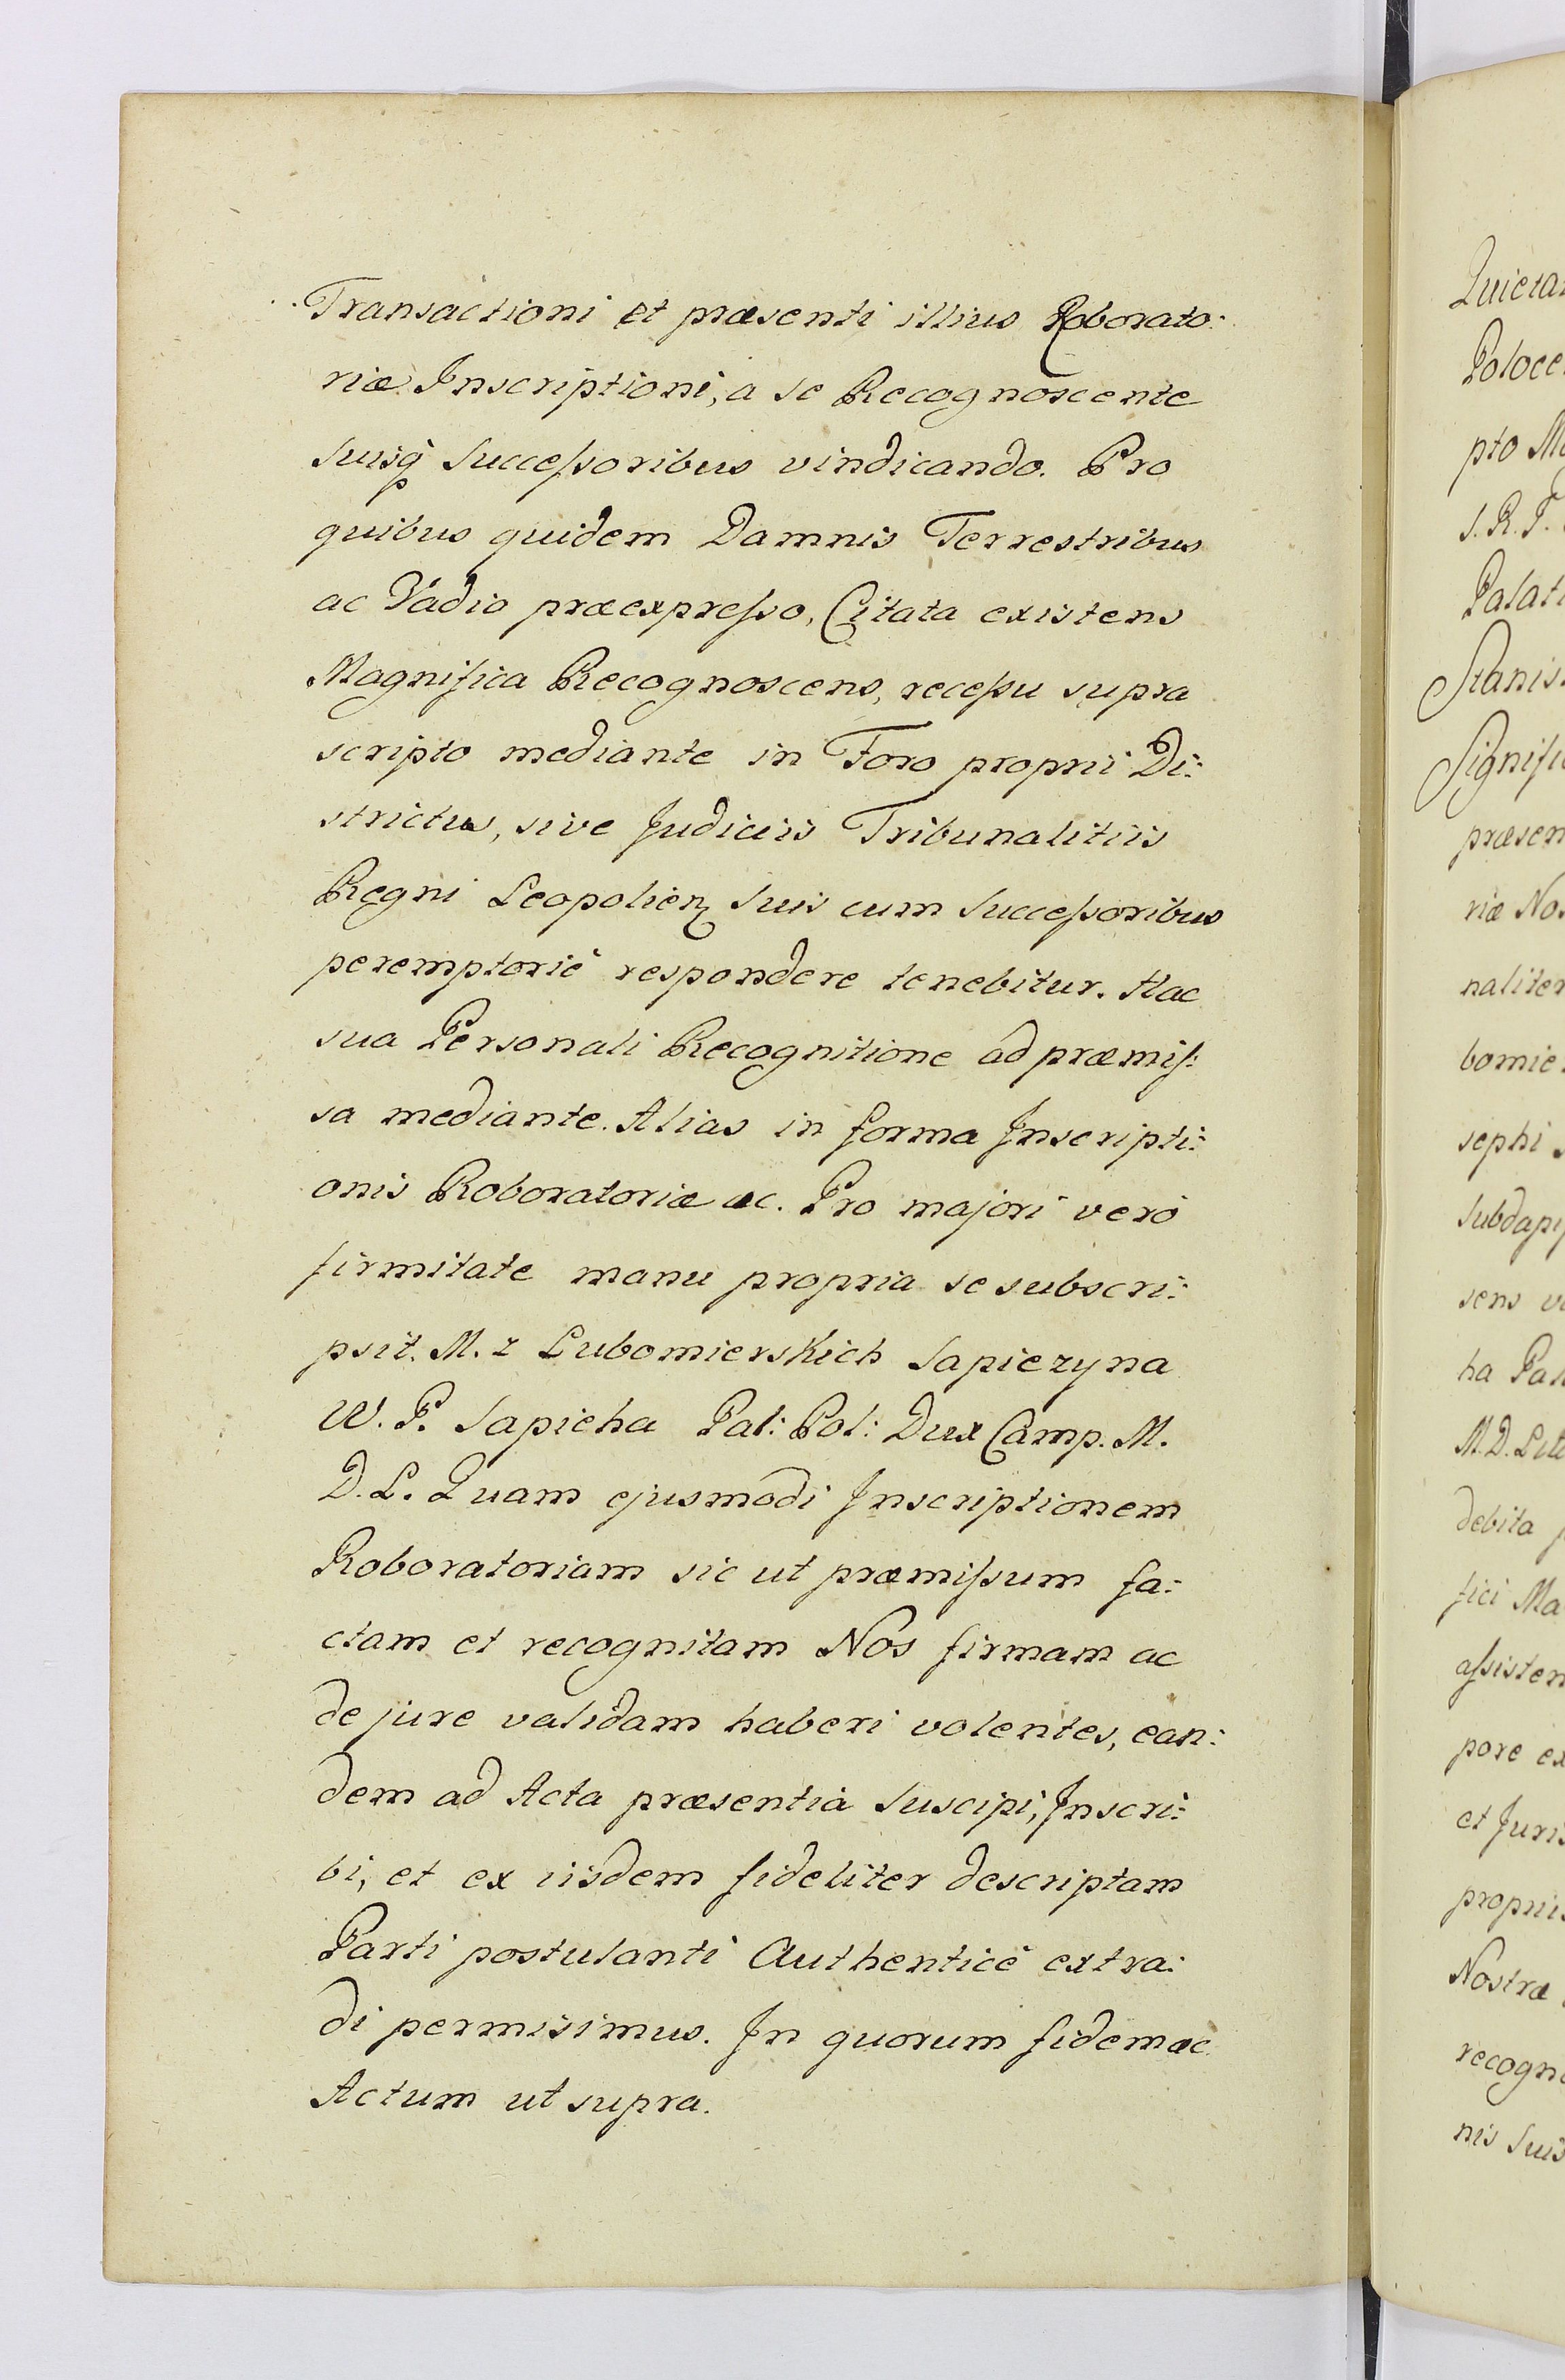 Transactioni et præsenti illius Roborato:
riæ Inscriptioni, a se Recognoscente
suisq́ Succeſsoribus vindicando. Pro
quibus quidem Damnis Terrestribus
ac Vadio præexpreſso, Citata existens
Magnifica Recognoscens, receſsu supra
scripto mediante in Foro proprii Di:
strictus, sive Judiciis Tribunalitiis
Regni Leopolien suis cum Succeſsoribus
peremptoriè respondere tenebitur. Hac
sua Personali Recognitione ad præmiſ:
sa mediante. Alias in forma Inscripti:
onis Roboratoriæ ac. Pro majori verò
firmitate manu propria se subscri:
psit. M. z Lubomierskich Sapiezyna
W. P. Sapieha Pal: Pol: Dux Camp. M.
D. L. Quam ejusmodi Inscriptionem
Roboratoriam sic ut præmiſsum fa:
ctam et recognitam Nos firmam ac
de jure validam haberi volentes, ean:
dem ad Acta præsentia suscipi, Inscri:
bi, et ex iisdem fideliter descriptam
Parti postulanti Authenticè extra:
di permisimus. In quorum fidem ac
Actum ut supra.
Quieta
Poloce
pto M
S. R. I.
Palati
Stanis
Signifi
præsen
riæ No
naliter
bomie
sephi
Subdapi
sens
ha Pal
M. D. Lit
debita
fici Ma
aſsisten
pore ex
et Juris
propriis
Nostræ
recogn
nis suis